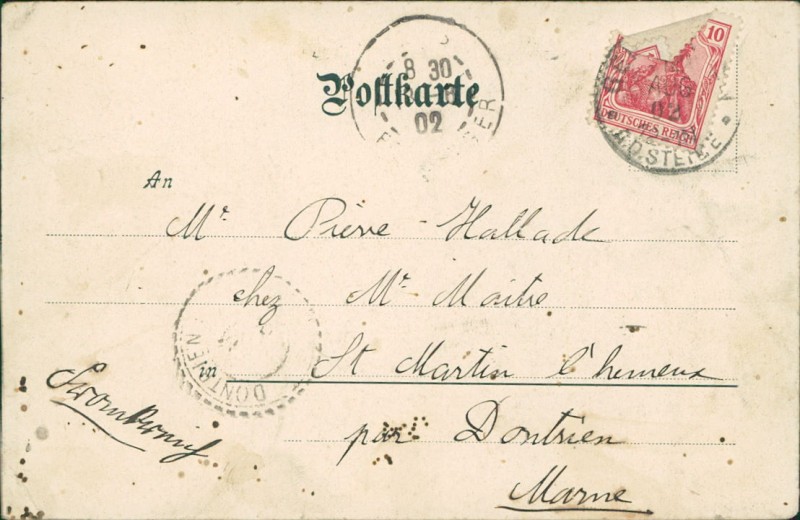 Postkarte
8 30
02
10
AUG
02
DEUTSCHES REICH
An
Mr Pierre Hallade
chez Mr Maitre
in St Martin l'hereux
DONTRIEN
par Dontrien
Marne